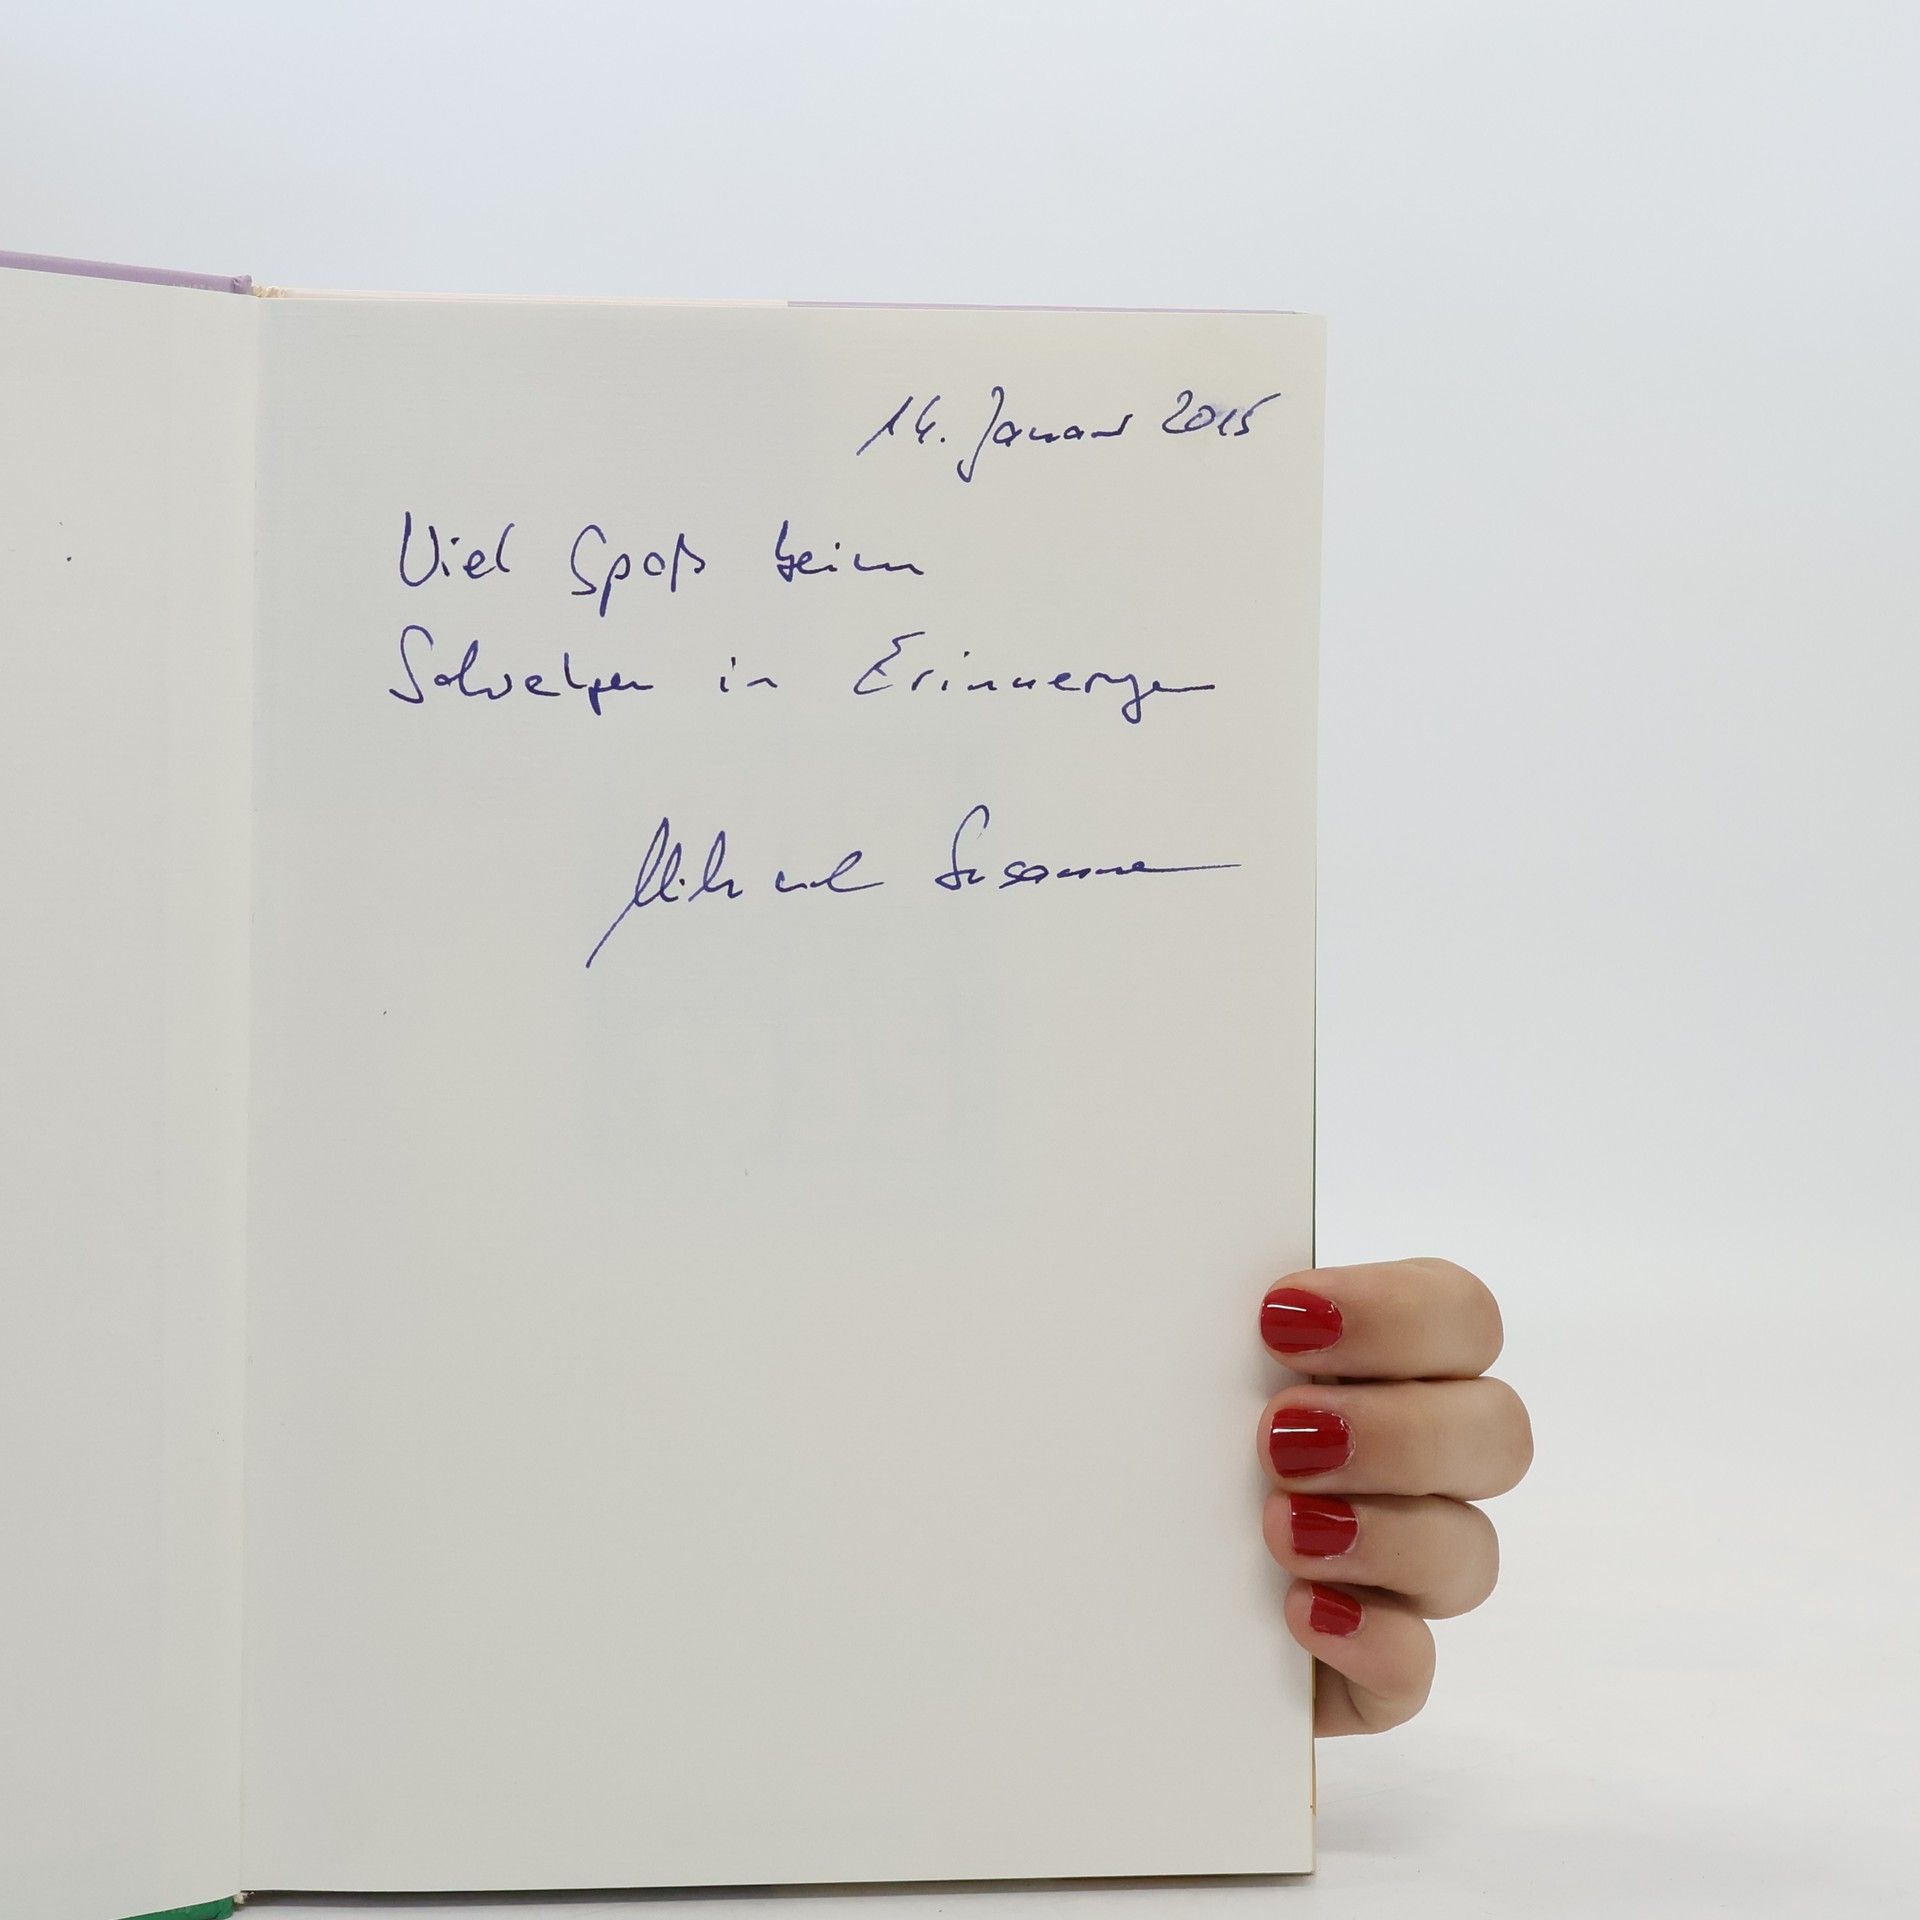 14. Januar 2015
Viel Spaß beim
Schwelgen in Erinnerungen
und Susanne